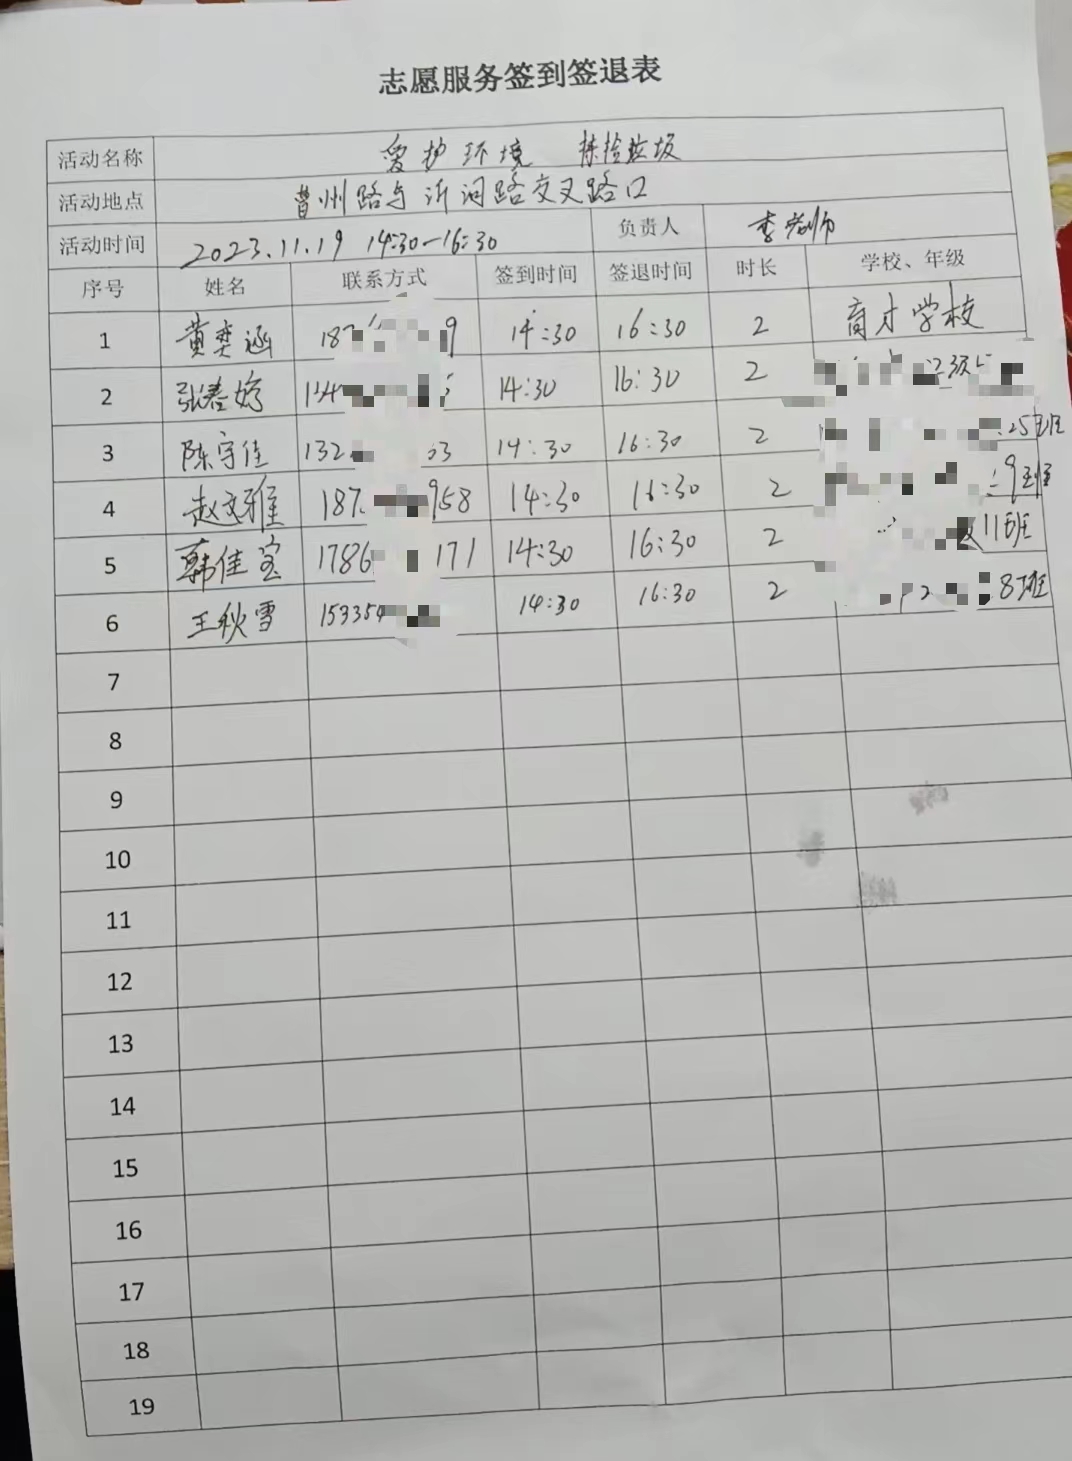 志愿服务签到签退表
活动名称 爱护环境 捡拾垃圾
活动地点 曹州路与沂河路交叉路口
活动时间 2023.11.19 14:30-16:30 负责人 李老师
序号 姓名 联系方式 签到时间 签退时间 时长 学校、年级
1 黄奕涵 187 9 14:30 16:30 2 育才学校
2 张春婷 14:30 16:30 2
3 陈宇佳 132 53 14:30 16:30 2 25班
4 赵文雅 187 958 14:30 16:30 2 9班
5 韩佳宝 1786 171 14:30 16:30 2 11班
6 王秋雪 15335 14:30 16:30 2 8班
7
8
9
10
11
12
13
14
15
16
17
18
19